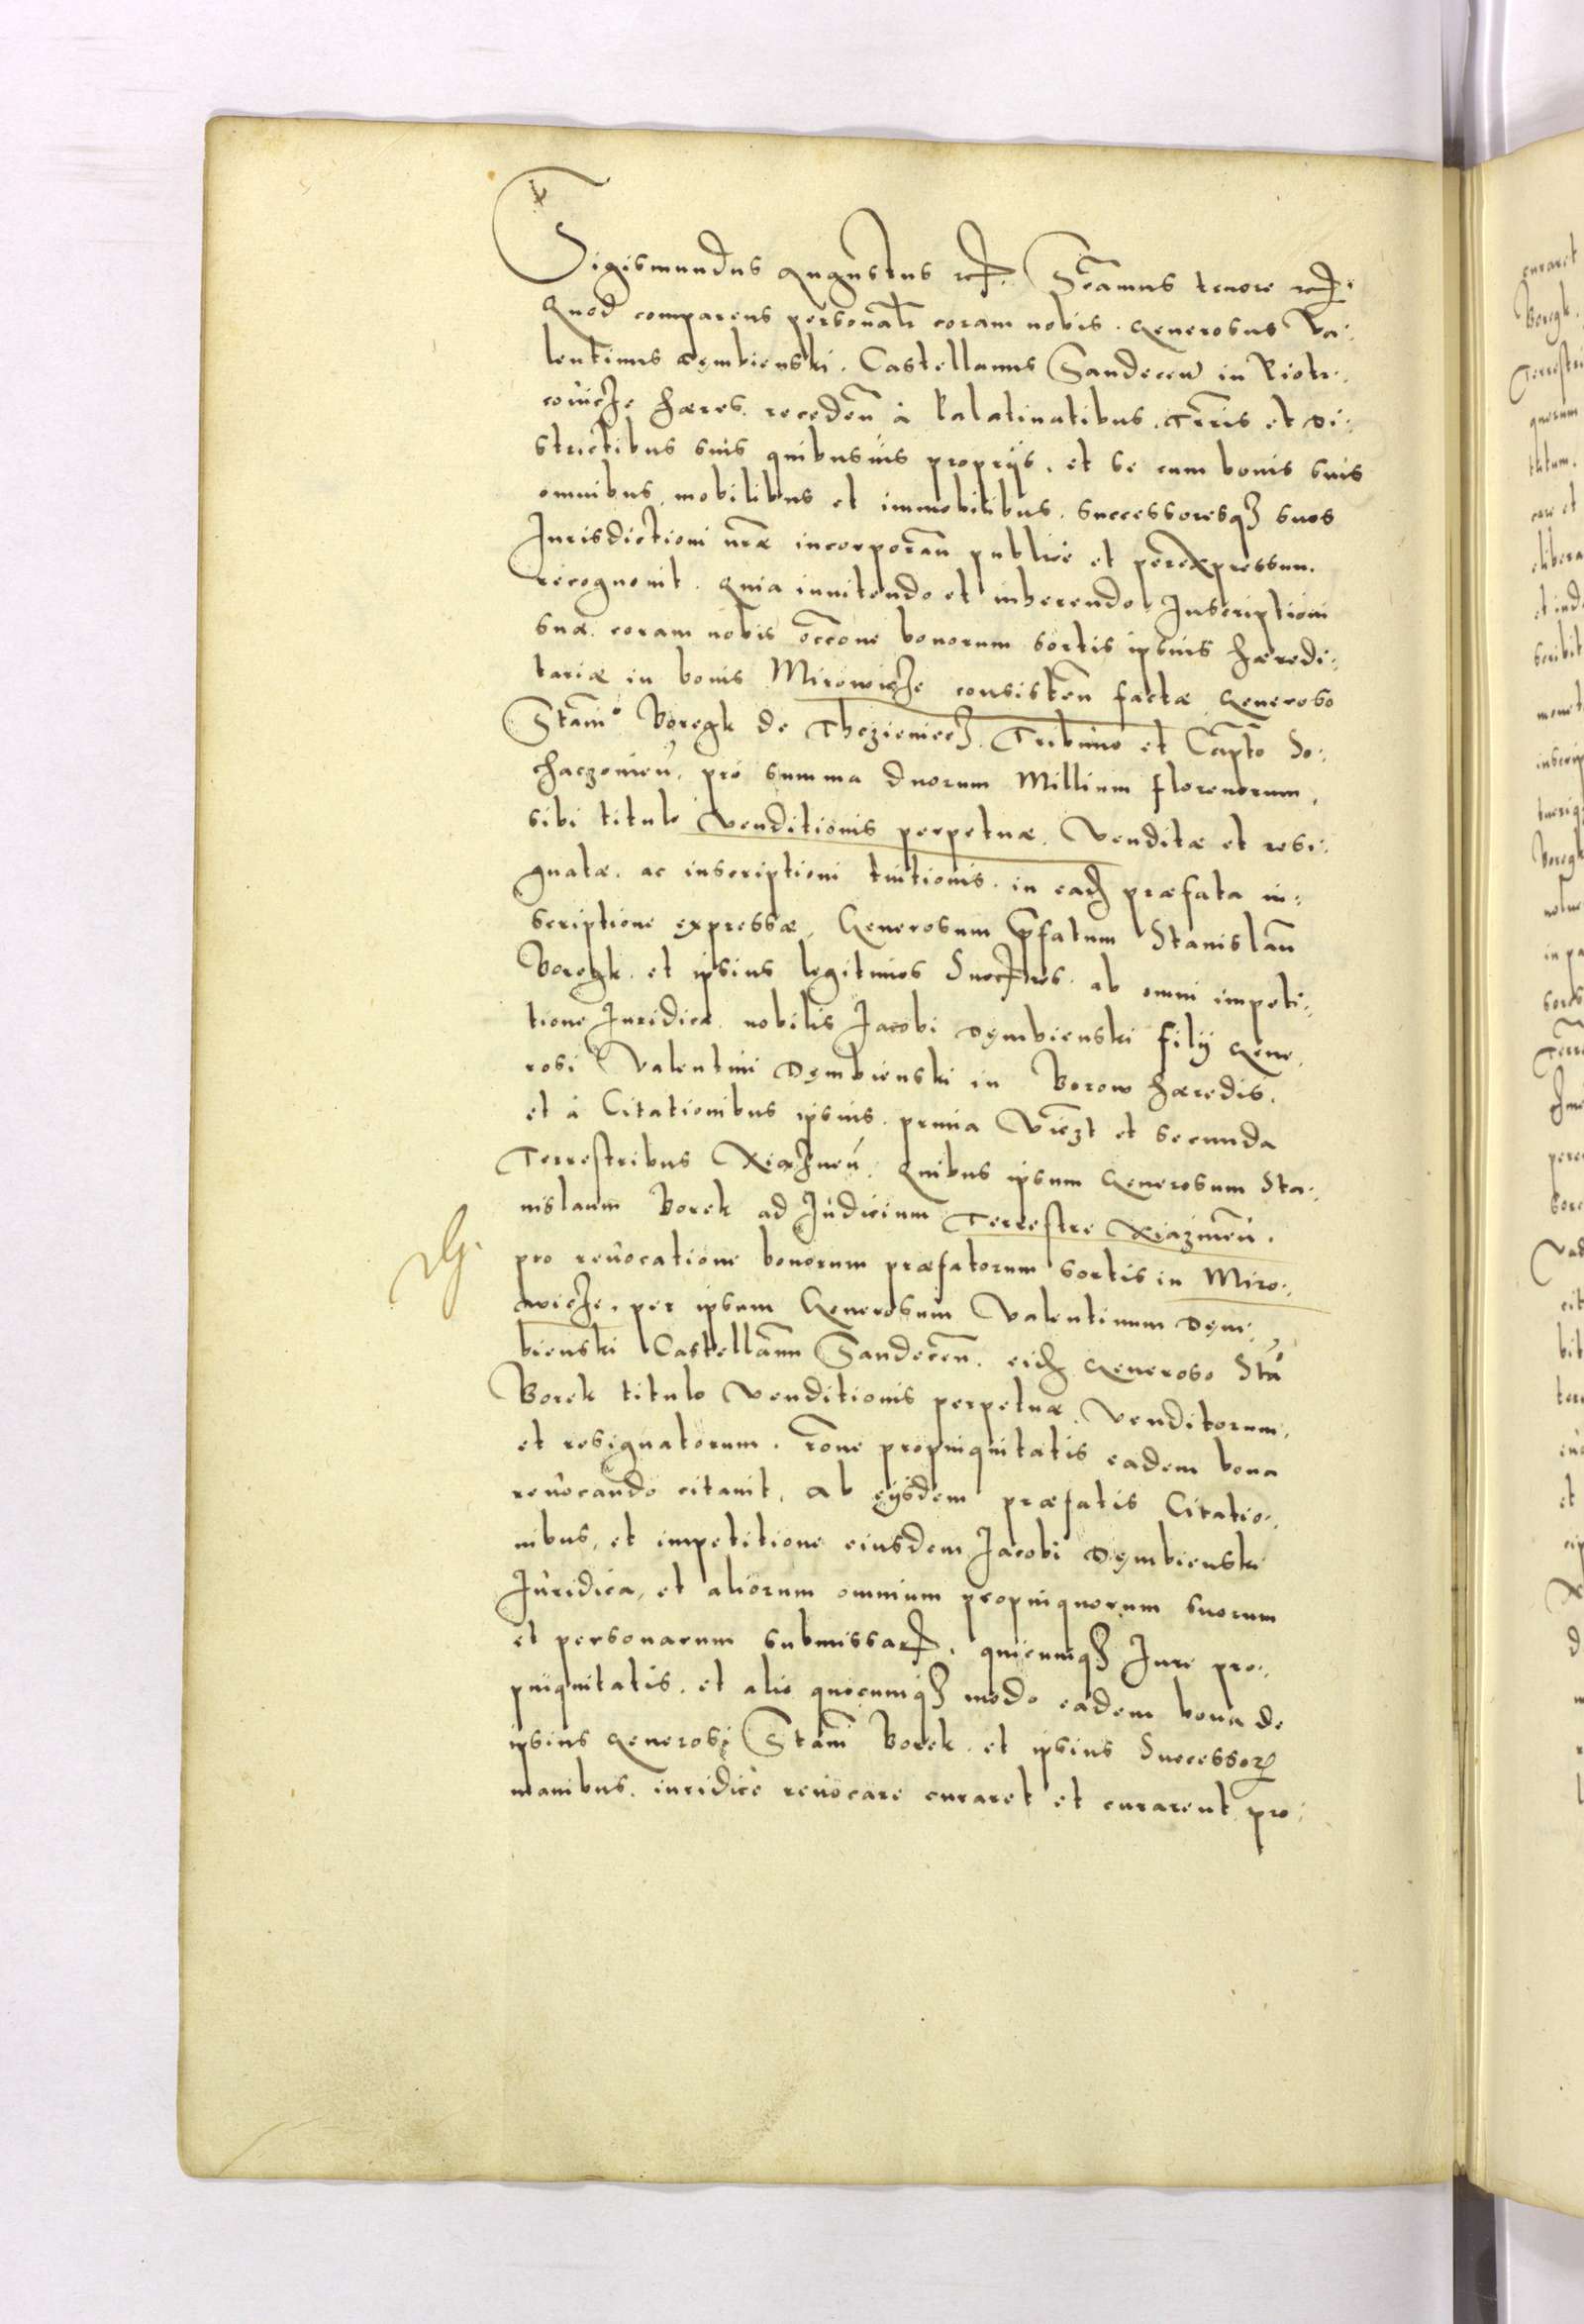 Sigismundus Augustus etc. Scamus tenore etc.
Quod comparens personalr coram nobis. Generosus Va-
lentinus Dęmbienski. Castellanus Sandecen in Piotr-
covicze Hæres. receden à Palatinatibus. Terris et Di-
strictibus suis quibusuis proprijs. et se cum bonis suis
omnibus. mobilibus et immobilibus. successoresq3 suos
Jurisdictioni nræ incorporan publice et per expressum.
recognouit. Quia innitendo et inherendo Inscriptioni
suæ. coram nobis occone bonorum sortis ipsius hæredi-
tariæ in bonis Mirowicze consisten factæ Generoso
Stano Boregk de Thczieniecz. Tribuno et Capto So-
chaczouien. pro summa duorum Millium florenorum.
sibi titulo venditionis perpetuæ. Venditæ et resi-
gnatæ. ac inscriptioni tuitionis. in ead3 præfata in-
scriptione expressæ. Generosum pfatum Stanislau
Boregk. et ipsius legitimos Succtres. ab omni impeti-
tione Juridica. nobilis Jacobi Dęmbienski filij Gene-
rosi Valentini Dembienski in Borow hæredis.
et à Citationibus ipsius. prima Viczt et secunda
Terrestribus Xiazneu. Quibus ipsum Generosum Sta-
nislaum Borek ad Judicium Terrestre Xiaznen.
pro reuocatione bonorum præfatorum sortis in Miro-
wicze. per ipsum Generosum Valentinum Dęm-
bienski Castellanu Sandecen. eid3 Generoso Stao
Borek titulo venditionis perpetuæ. Venditorum.
et resignatorum. rone propinquitatis eadem bona
reuocando citauit. Ab eijsdem præfatis Citatio-
nibus. et impetitione eiusdem Jacobi Dęmbienski
Juridica. et aliorum omnium propinquorum suorum
et personarum submissar. quicumq3 Jure pro-
pinquitatis. et alio quocumq3 modo eadem bona de
ipsius Generosi Stani Borek. et ipsius Successor
manibus. iuridicè reuocare curaret et curarent. pro-